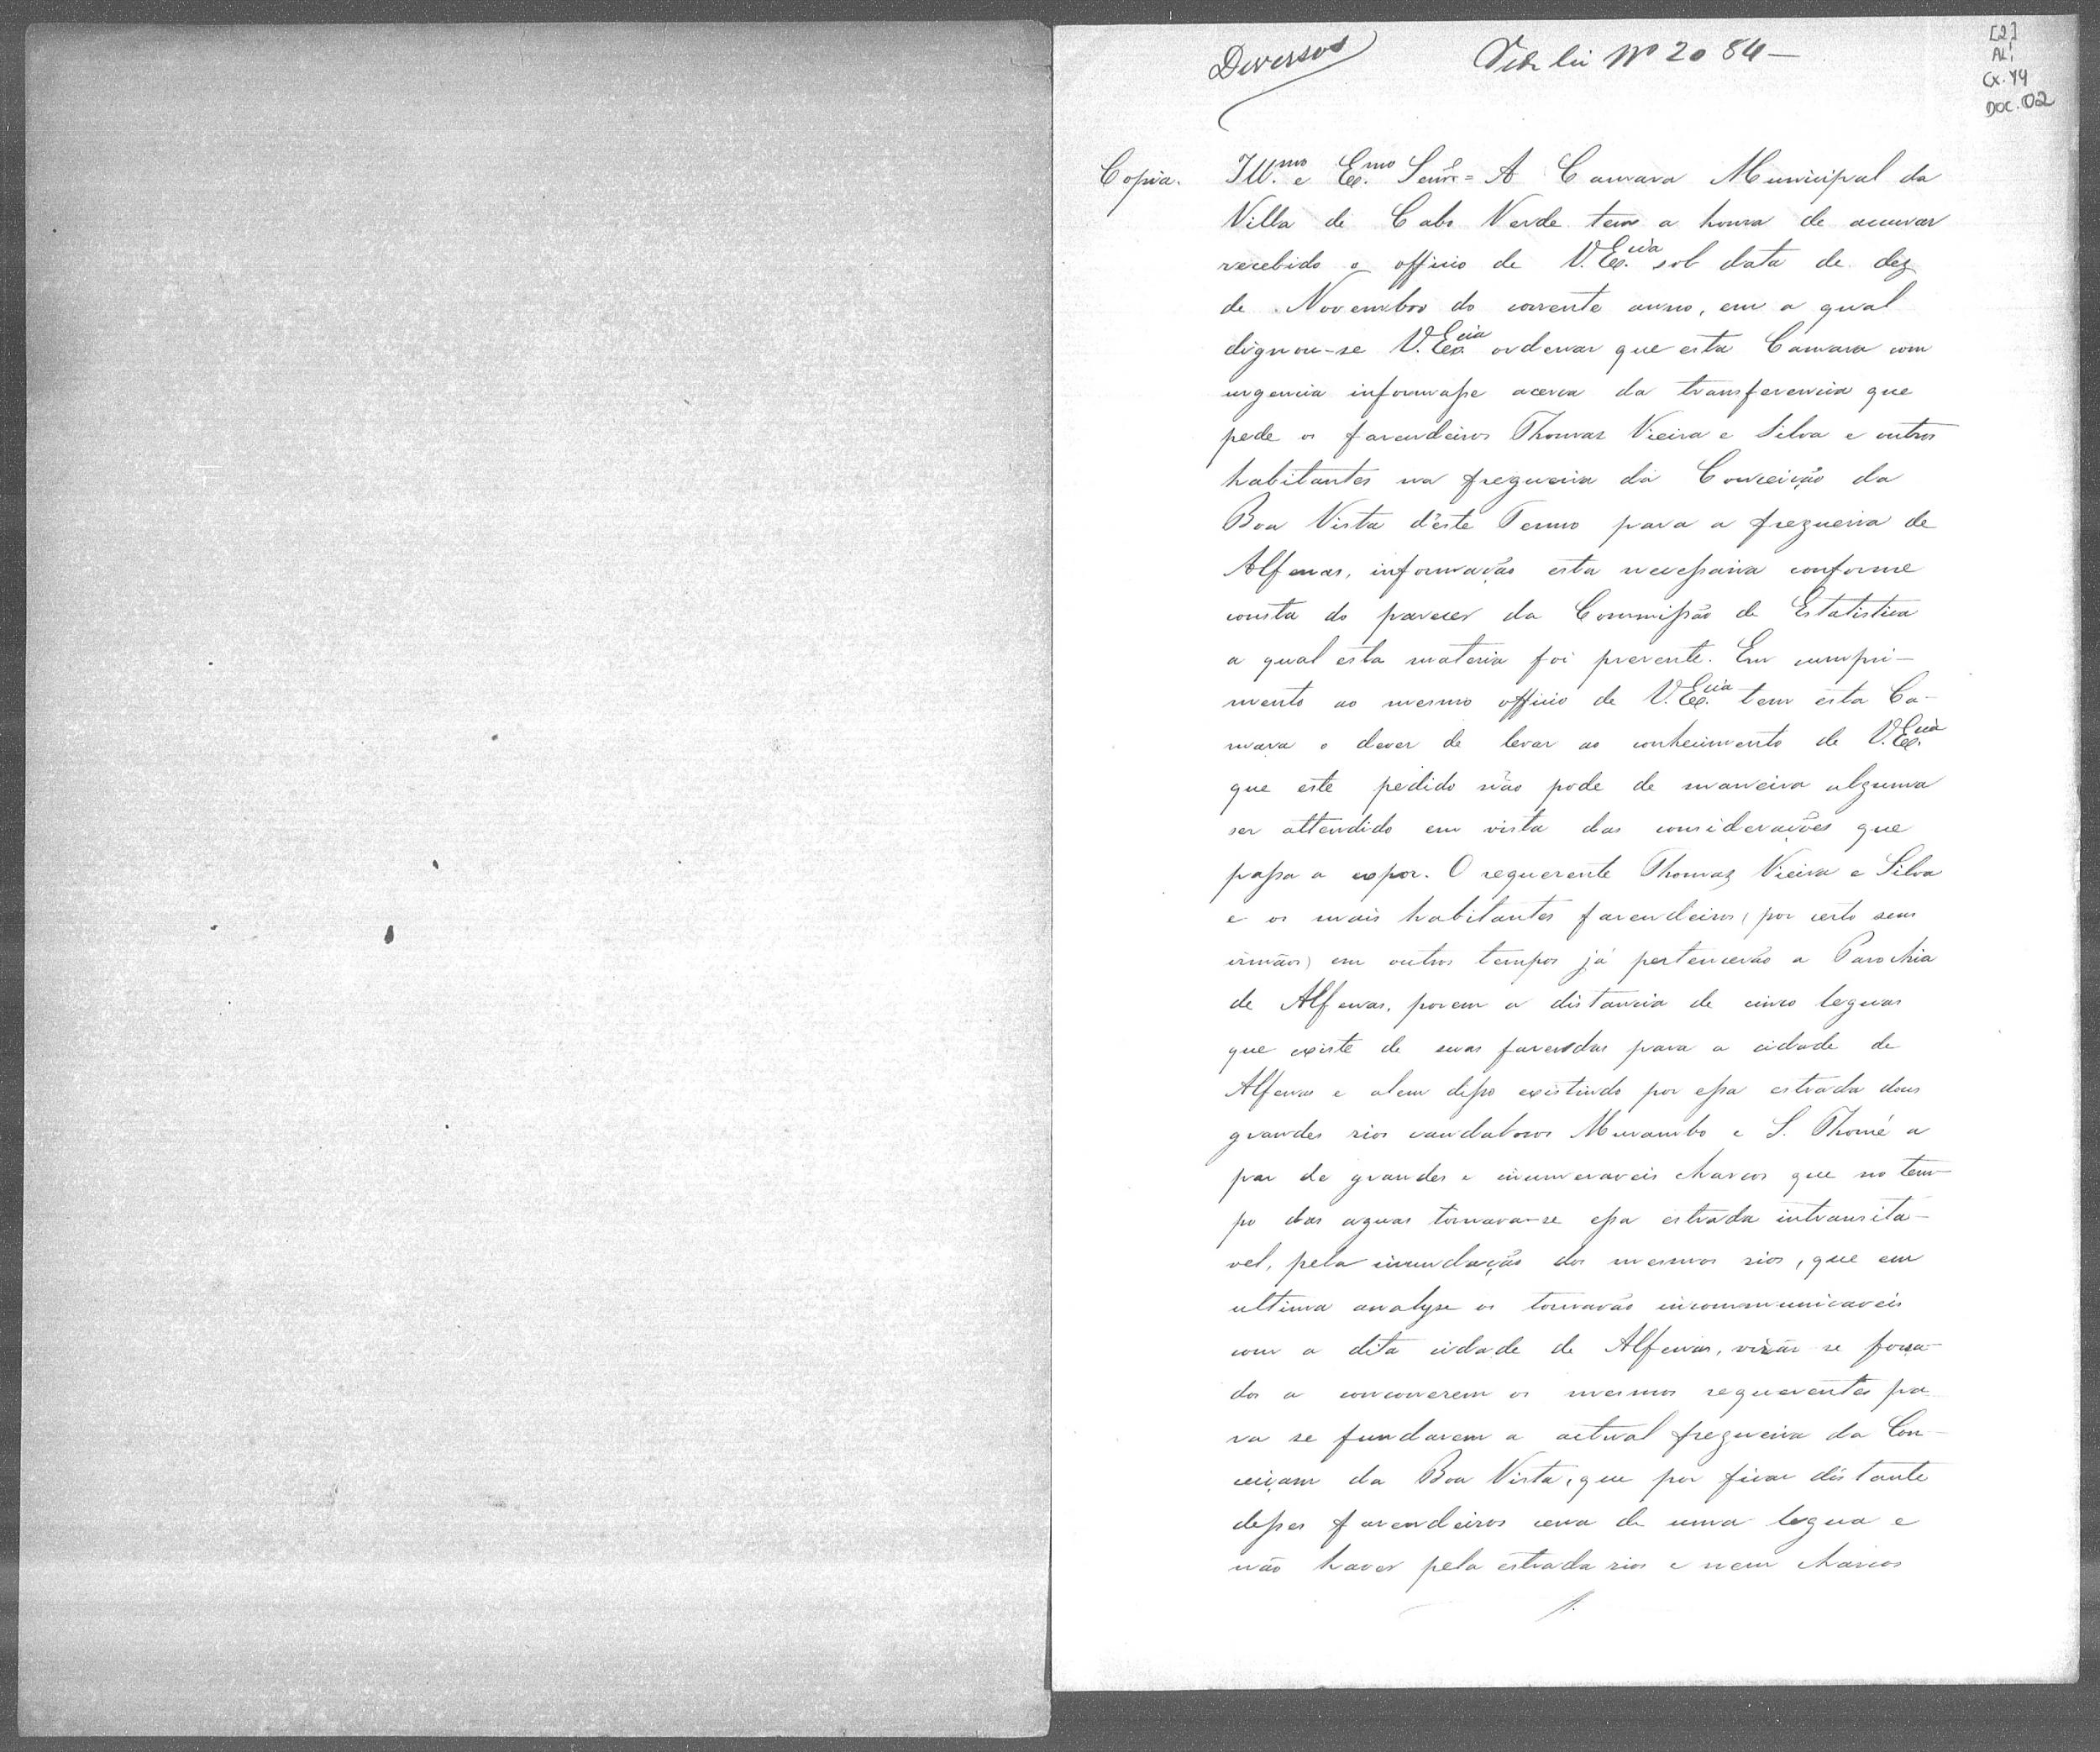 Diversos
Vide lei Nº 2084-
[2]
AL!
Cx. 44
DOC. 02
Copia. Ill.mo e Ex.mo Senr.= A Camara Municipal da
Villa de Cabo Verde tem a honra de accusar
recebido o officio de V.Ex.cia sob data de dez
de Novembro do corrente anno, em a qual
dignou-se V.Ex.cia ordenar que esta Camara com
urgencia informasse acerca da transferencia que
pede os fazendeiros Thomaz Vieira e Silva e outros
habitantes na freguezia da Conceição da
Boa Vista d'este Termo para a freguezia de
Alfenas, informação esta necessaria conforme
consta do parecer da Commissão de Estatistica
a qual esta materia foi prezente. Em cumpri-
mento ao mesmo officio de V.Ex.cia tem esta Ca-
mara o dever de levar ao conhecimento de V.Ex.cia
que este pedido não pode de maneira alguma
ser attendido em vista das considerações que
passa a expor. O requerente Thomaz Vieira e Silva
e os mais habitantes fazendeiros (por certo seus
irmãos) em outros tempos já pertencerão a Parochia
de Alfenas, porem a distancia de cinco leguas
que existe de suas fazendas para a cidade de
Alfenas e alem disso existindo por essa estrada dous
grandes rios caudalosos Muzambo e S. Thomé a
par de grandes e inumeraveis charcos que no tem-
po das aguas tornava-se essa estrada intransita-
vel, pela inundação dos mesmos rios, que em
ultima analyse os tornavão incommunicaveis
com a dita cidade de Alfenas, virão se força-
dos a concorrerem os mesmos requerentes pa
ra se fundarem a actual freguezia da Con-
ceiçam da Boa Vista, que por ficar distante
desses fazendeiros cerca de uma legua e
não haver pela estrada rios e nem charcos